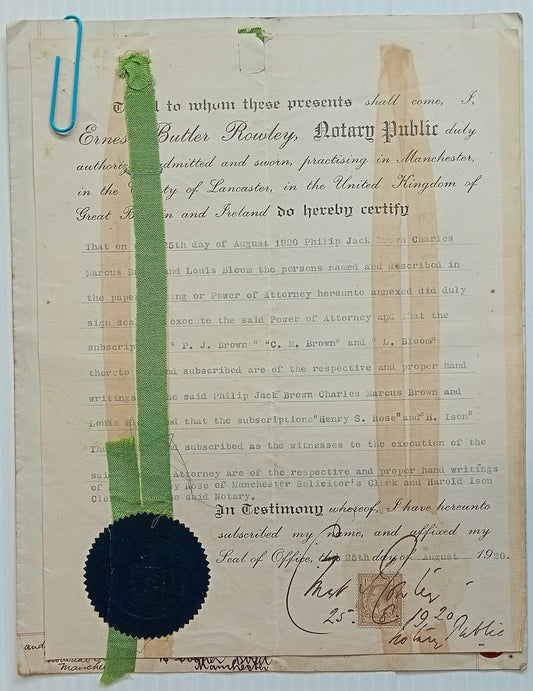 to whom these presents shall come, I,
Butler Rowley, Notary Public duly
admitted and sworn, practising in Manchester,
in the of Lancaster, in the United Kingdom of
Great and Ireland do hereby certify
That on 25th day of August 1920 Philip Jack Brown Charles
Marcus and Louis Bloom the persons named and described in
the paper or Power of Attorney hereunto annexed did duly
sign execute the said Power of Attorney and that the
" P. J. Brown" "C. M. Brown" and " L. Bloom"
thereto and subscribed are of the respective and proper hand
writings said Philip Jack Brown Charles Marcus Brown and
Louis and that the subscriptions "Henry S. Rose" and "H. Ison"
subscribed as the witnesses to the execution of the
Attorney are of the respective and proper hand writings
of Rose of Manchester Solicitor's Clerk and Harold Ison
said Notary.
In Testimony whereof, I have hereunto
subscribed my name, and affixed my
Seal of Office, this 25th day of August 1920.
Rowley
25. 8 1920
Notary Public
and
Manchester